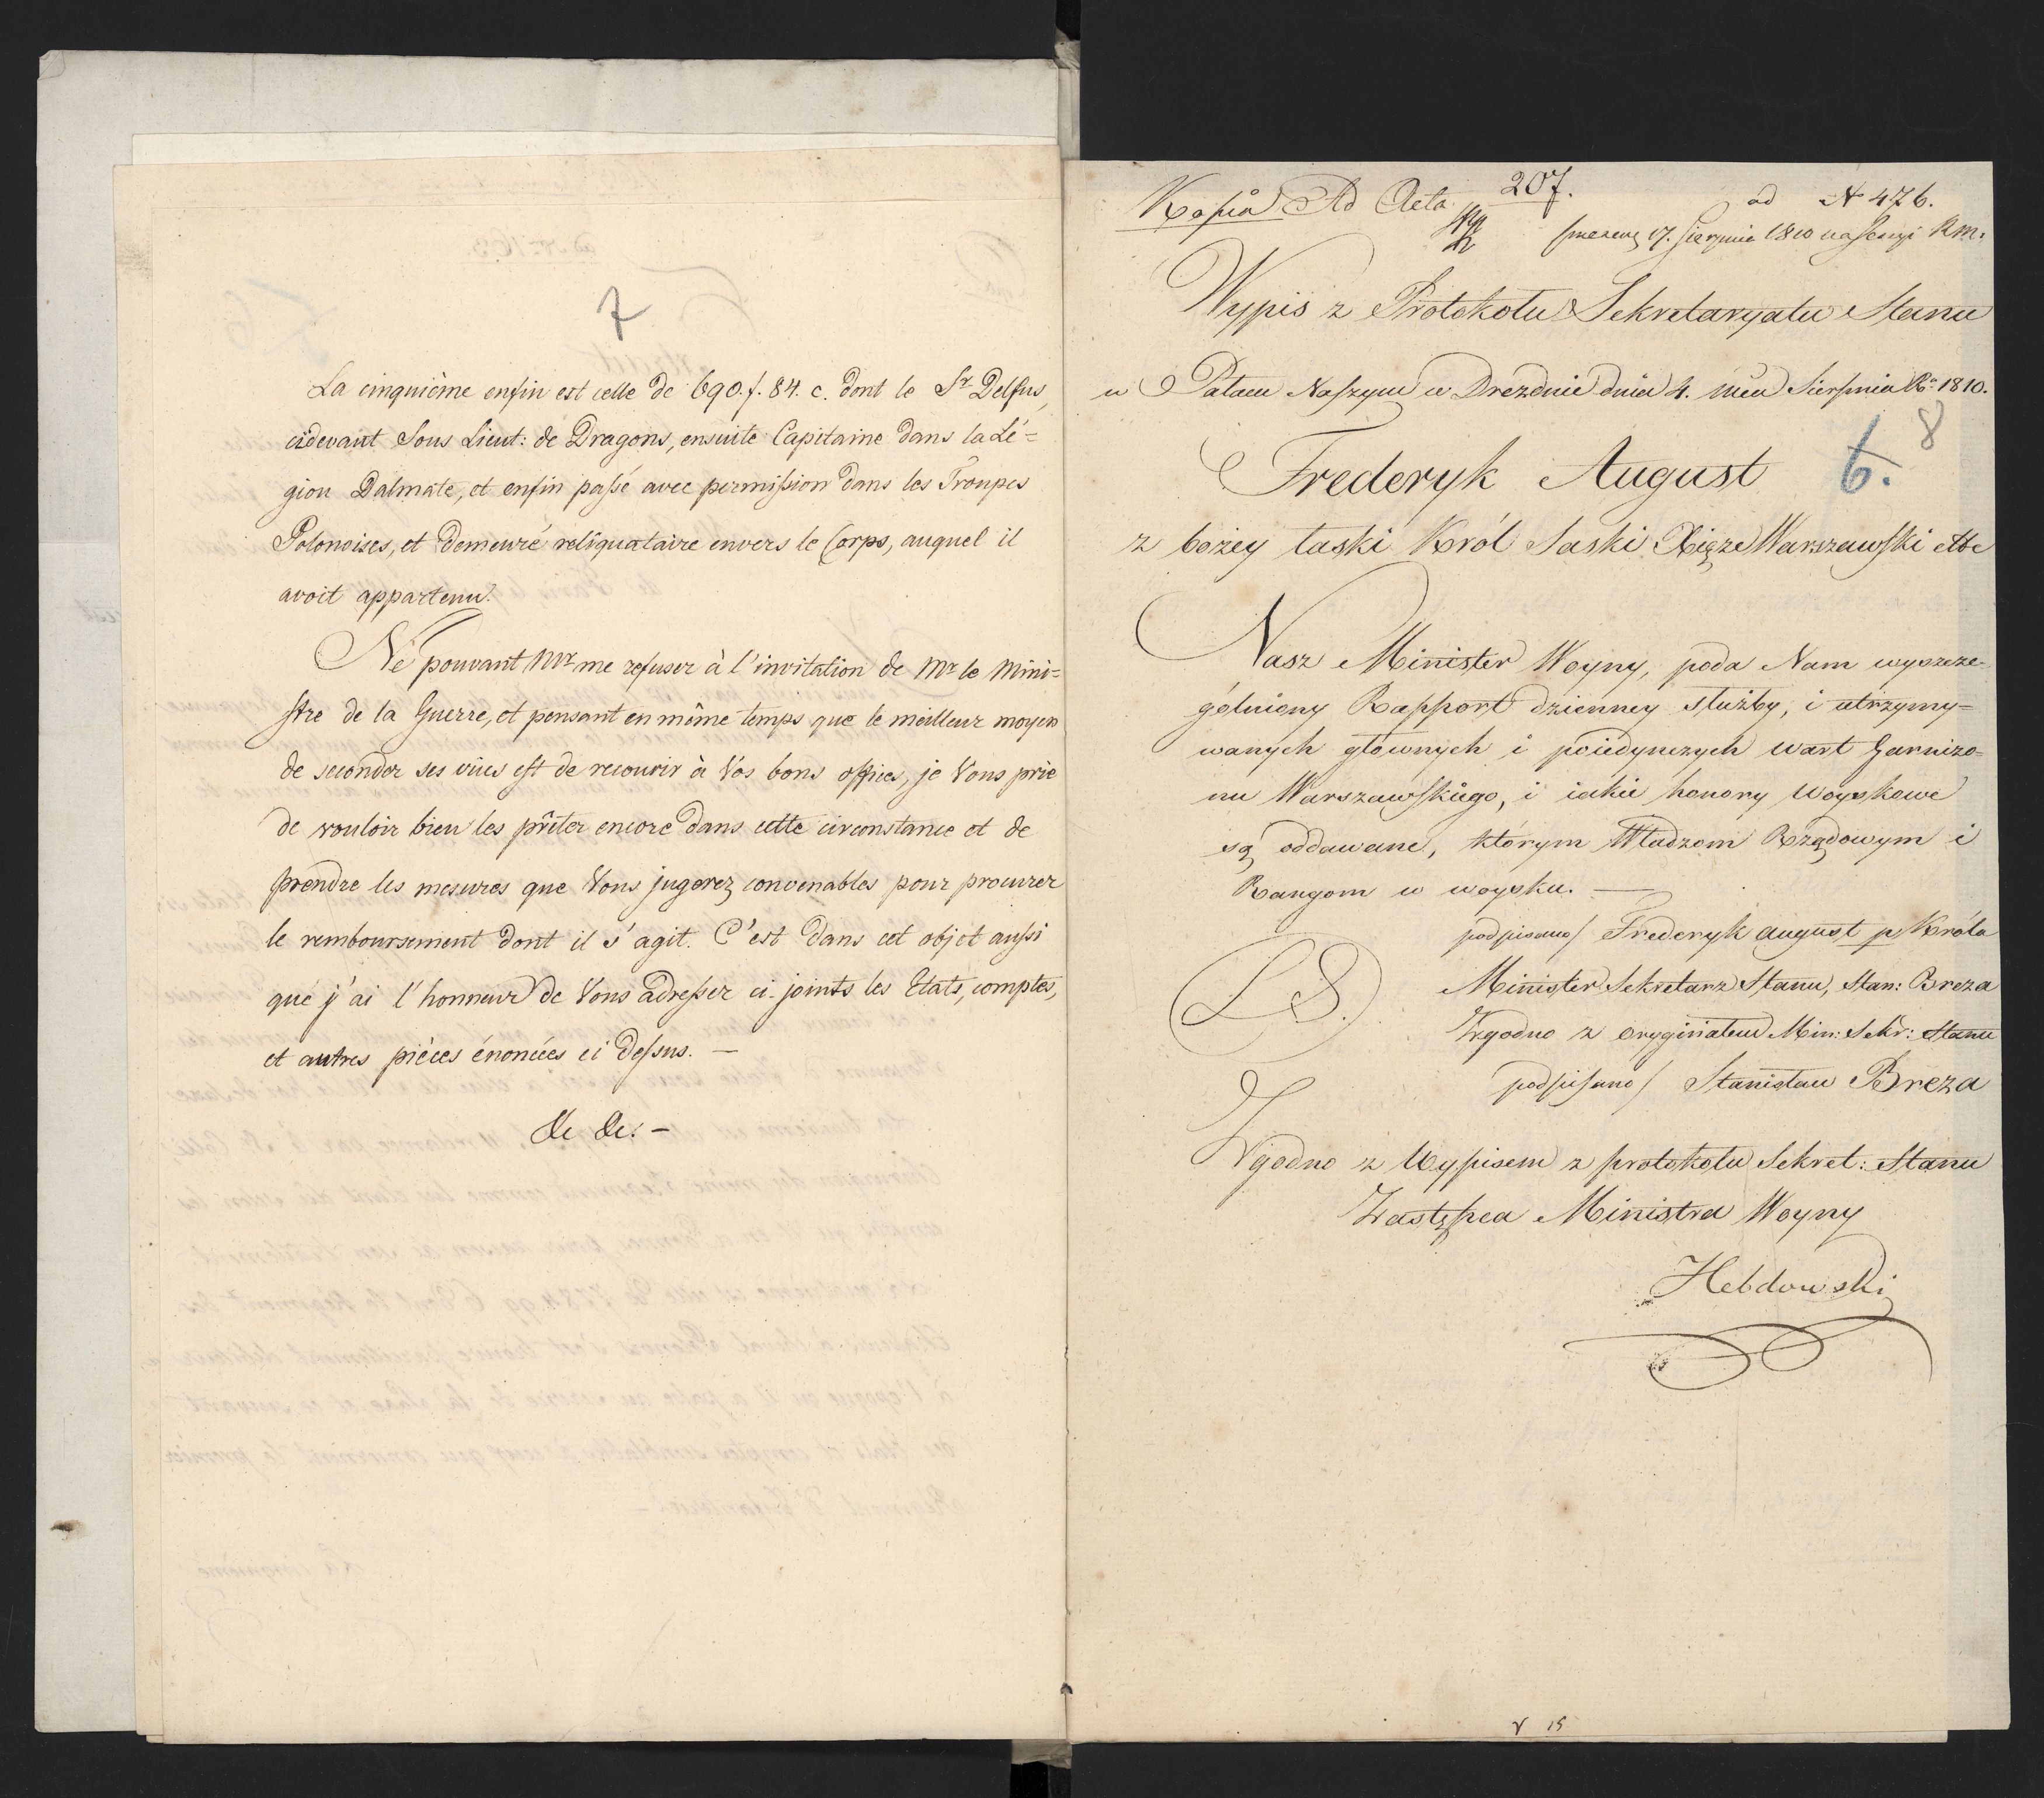 7
La cinquième enfin est celle de 690. f. 84. c. dont le Sr. Delfus,
cidevant Sous Lieut: de Dragons, ensuite Capitaine dans la Lé=
gion Dalmate, et enfin passé avec permission dans les Troupes
Polonoises, et demeuré reliquataire envers le Corps, auquel il
avoit appartenu.
Ne pouvant Mr. me refuser à l'invitation de Mr. le Mini=
stre de la Guerre, et pensant en même temps que le meilleur moyen
de seconder ses vües est de recourir à Vos bons offices, je Vous prie
de vouloir bien les prêter encore dans cette circonstance et de
prendre les mesures que Vous jugerez convenables pour procurer
le remboursement dont il s'agit. C'est dans cet objet aussi
que j'ai l'honneur de Vous adresser ci-joints les Etats, comptes,
et autres pièces énoncées ci dessus. —
&c &c: —
Kopia Ad Acta 207. ad N 476.
17. Sierpnia 1810 na Sessyi RM:
Wypis z Protokołu Sekretaryatu Stanu
w Pałacu Naszym w Dreznie dnia 4. mca Sierpnia Ro. 1810.
8
6.
Frederyk August
z bożey łaski Król Saski Xiąze Warszawski etc
Nasz Minister Woyny, poda Nam wyszcze-
gólniony Rapport dzienney służby, i utrzymy=
wanych głównych i poiedynczych wart Garnizo=
nu Warszawskiego, i iakie honory woyskowe
są oddawane, którym Władzom Rządowym i
Rangom w woysku. —
podpisano/ Frederyk August p. Króla
L S.
Minister Sekretarz Stanu, Stan: Breza
Zgodno z oryginałem Min: Sekr: Stanu
podpisano/ Stanisław Breza
Zgodno z Wypisem z protokołu Sekret: Stanu
Zastępca Ministra Woyny
Hebdowski
15